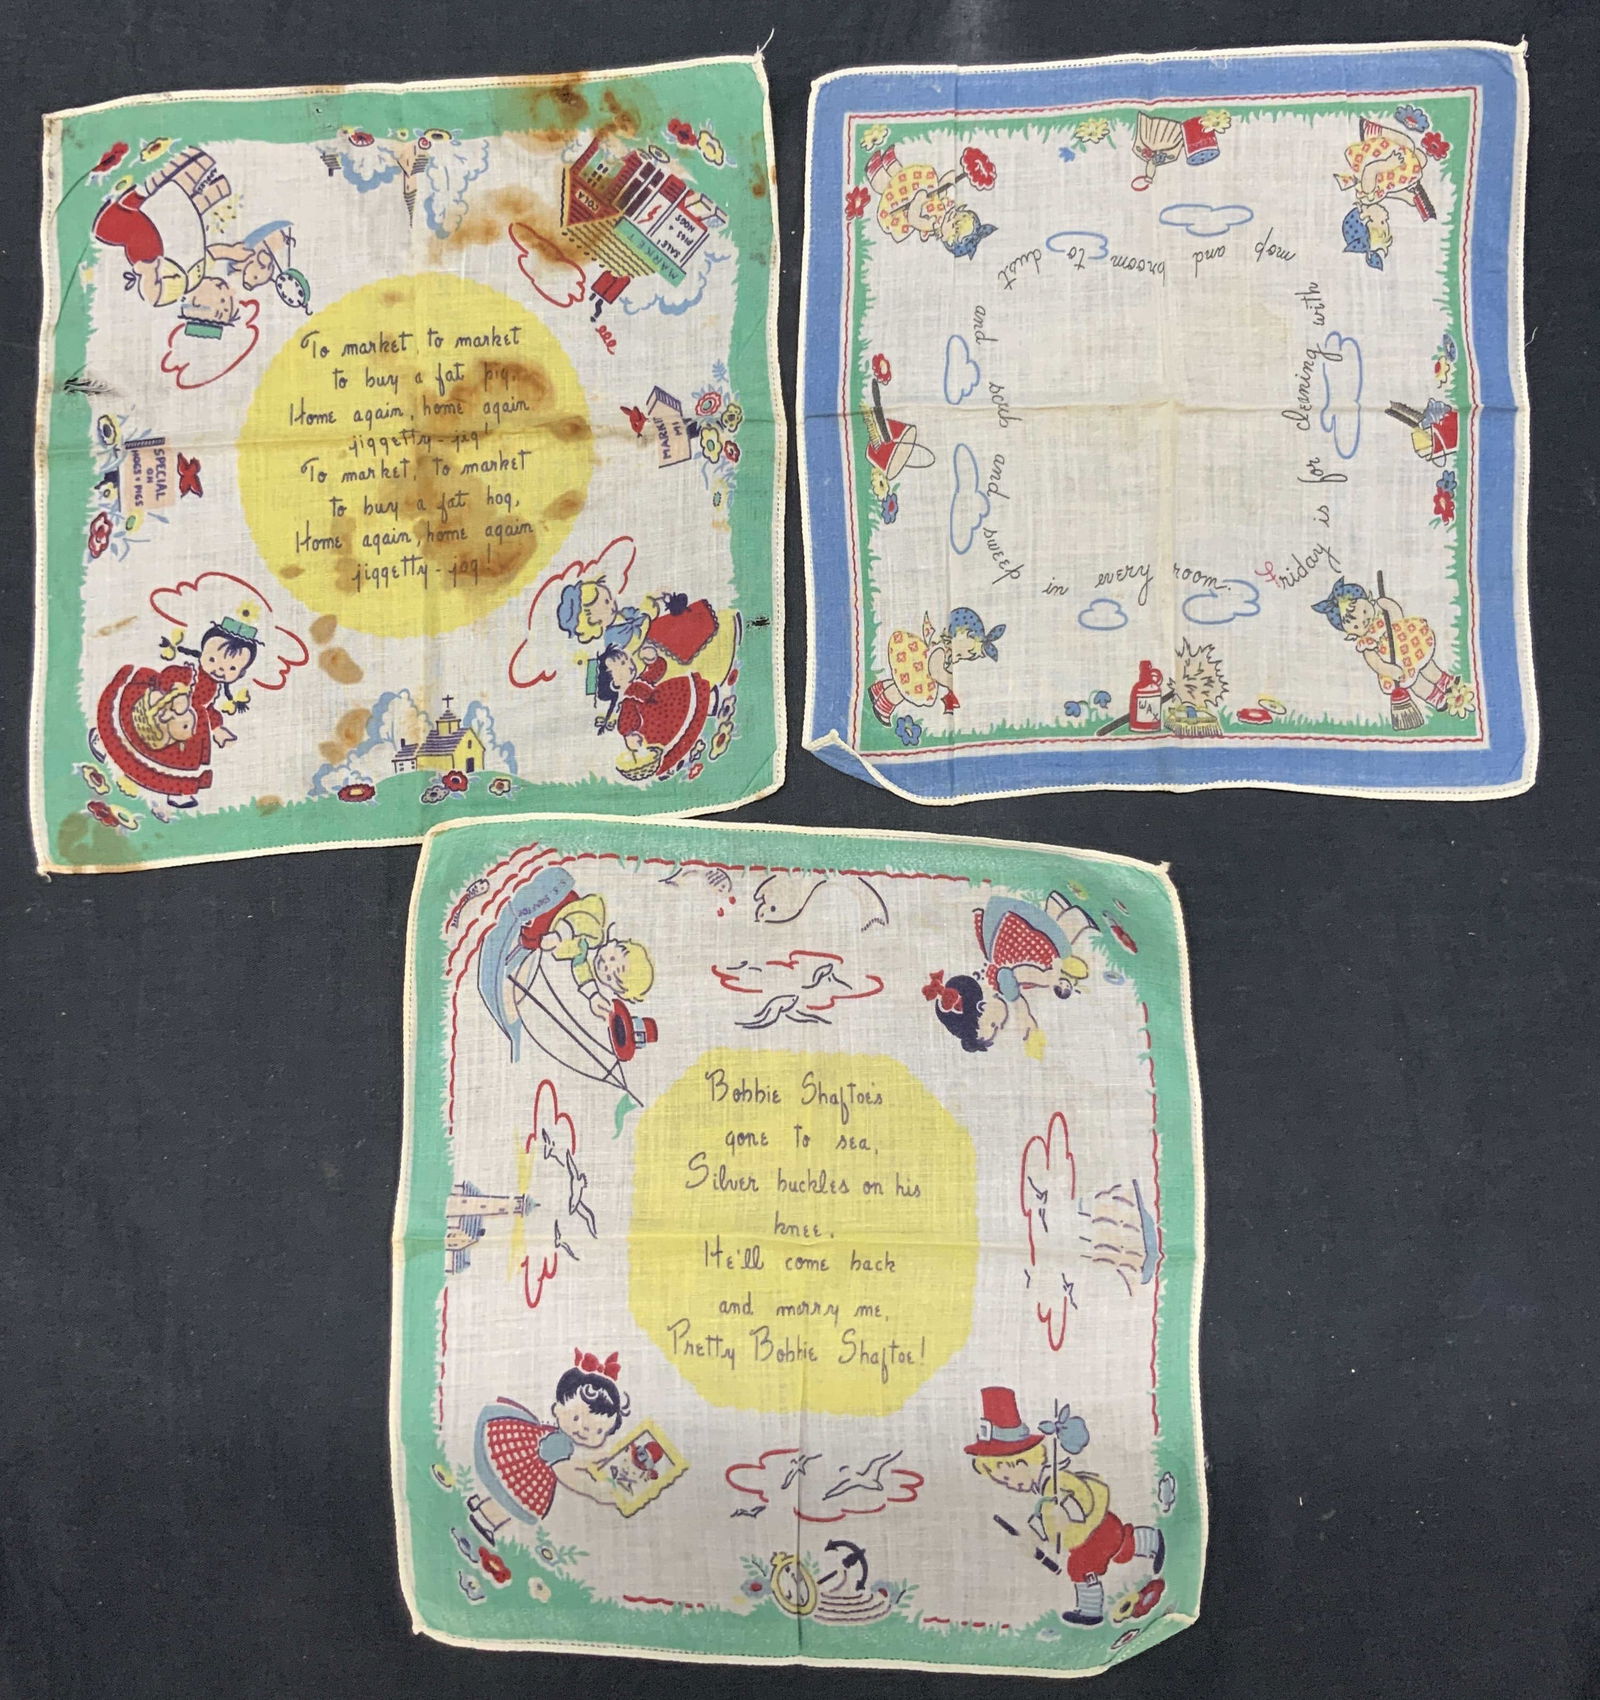 To market, to market
to buy a fat pig,
Home again, home again
jiggetty-jig!
To market, to market
to buy a fat hog,
Home again, home again
jiggetty-jog!
MARKET
SALE!
PIGS &
HOGS
MARKET
SPECIAL
ON
HOGS & PIGS
Friday is for cleaning with
mop and broom to dust
and scrub and sweep
in every room
WAX
Bobbie Shaftoe's
gone to sea,
Silver buckles on his
knee,
He'll come back
and marry me,
Pretty Bobbie Shaftoe!